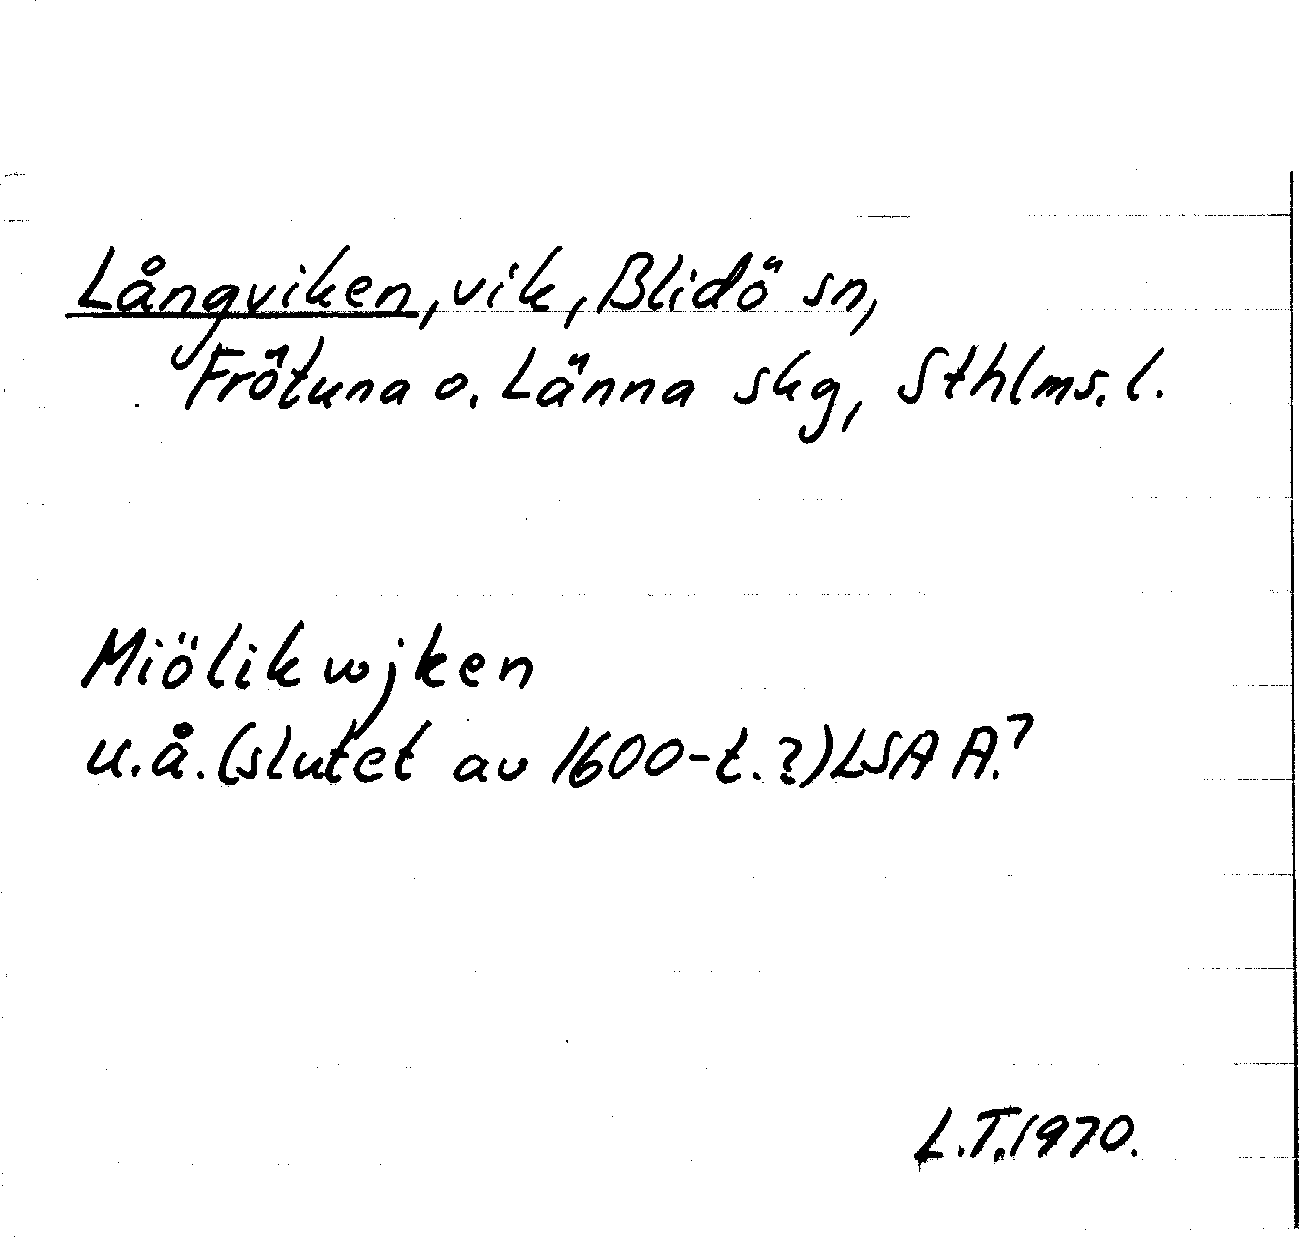 Långviken, vik, Blidö sn,
Frötuna o. Länna skg, Sthlms. l.
Miölikwjken
u.å. (slutet av 1600-t.?) LSA A.7
L.T. 1970.